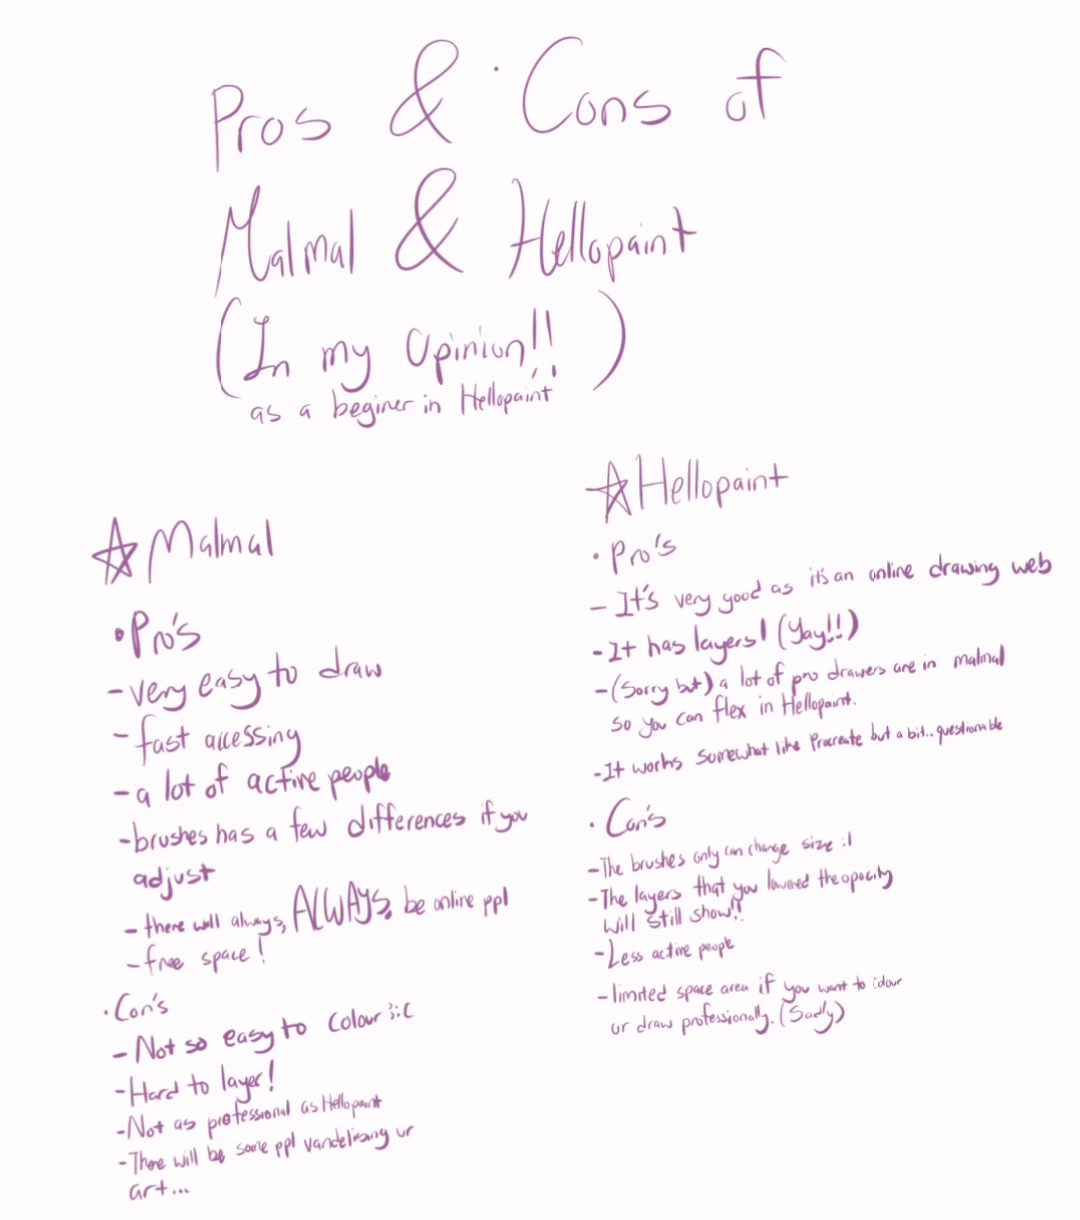 Pros & Cons of
Malmal & Hellopaint
(In my Opinion!!)
as a beginer in Hellopaint
☆ Malmal
• Pro's
- very easy to draw
- fast accessing
- a lot of active people
- brushes has a few differences if you
adjust
- there will always, ALWAYS, be online ppl
- free space!
• Con's
- Not so easy to colour :C
- Hard to layer!
- Not as professional as Hellopaint
- There will be some ppl vandelising ur
art...
☆ Hellopaint
• Pro's
- It's very good as it's an online drawing web
- It has layers! (Yay!!)
- (Sorry but) a lot of pro drawers are in malmal
so you can flex in Hellopaint.
- It works somewhat like Procreate but a bit.. questionable
• Con's
- The brushes only can change size :l
- The layers that you lowered the opacity
will still show!!
- Less active people
- limited space area if you want to colour
or draw professionally. (Sadly)